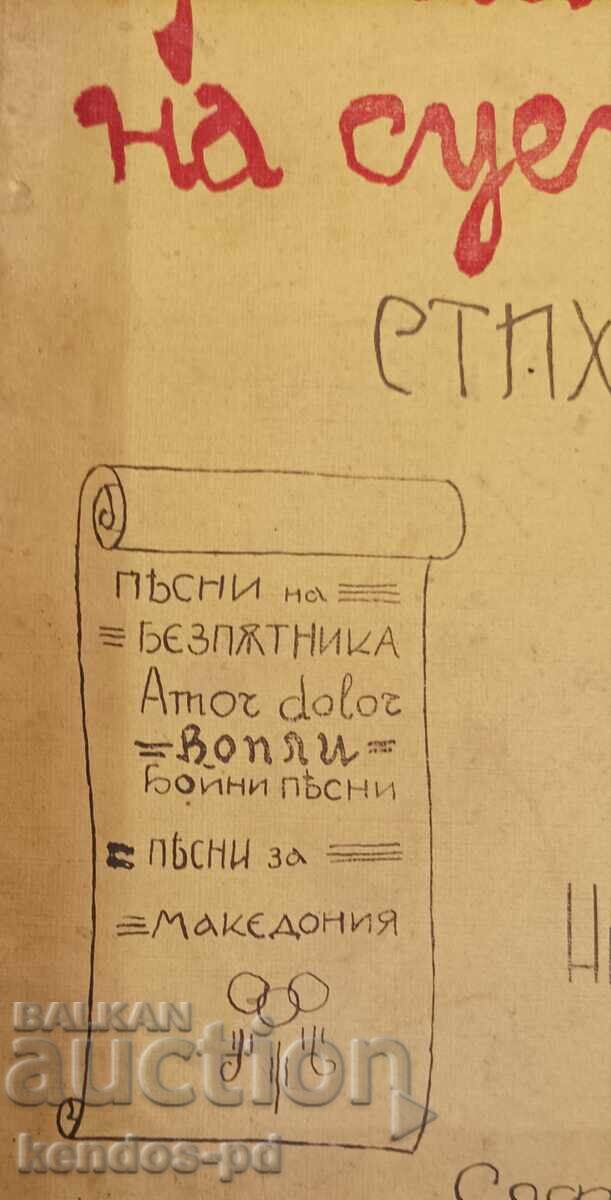 на сце
СТИХ
ПѢСНИ на
БЕЗПѪТНИКА
Amor dolor
ВОПЛИ
Бойни пѣсни
ПѢСНИ за
МАКЕДОНИЯ
BALKAN
auction
kendos-pd